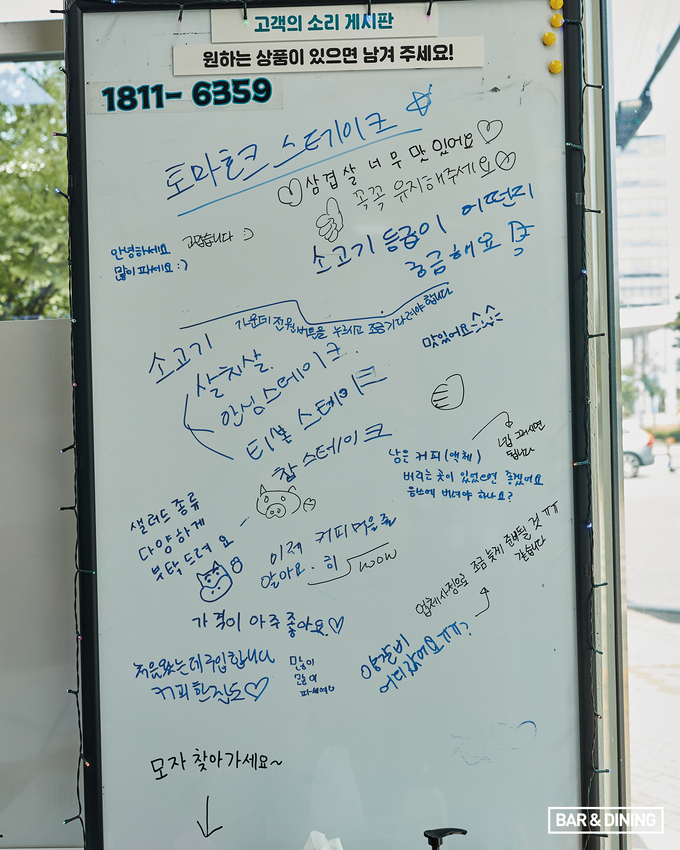 고객의 소리 게시판
원하는 상품이 있으면 남겨 주세요!
1811- 6359
토마호크 스테이크
삼겹살 너무 맛있어요
꼭꼭 유지해주세요
안녕하세요
많이 파세요 :)
고맙습니다 :)
소고기 등급이 어떤지
궁금해요
가운데 전원버튼을 누르시고 조금 기다려야합니다
소고기
살치살.
안심스테이크.
티본 스테이크
찹 스테이크
맛있어요
네 그러시면
됩니다
남은 커피(액체)
버리는 곳이 있었으면 좋겠어요
음쓰에 버려야 하나요?
샐러드 종류
다양하게
부탁드려요
이제 커피머은줄
알아요. 히
wow
업체사정으로 조금 늦게 준비될 것 ㅠㅠ
같습니다
가격이 아주 좋아요
양갈비
어디갔어요ㅠㅠ?
처음왔는데 구입합니다
커피한잔도
많이
많이
파세요
모자 찾아가세요~
BAR & DINING